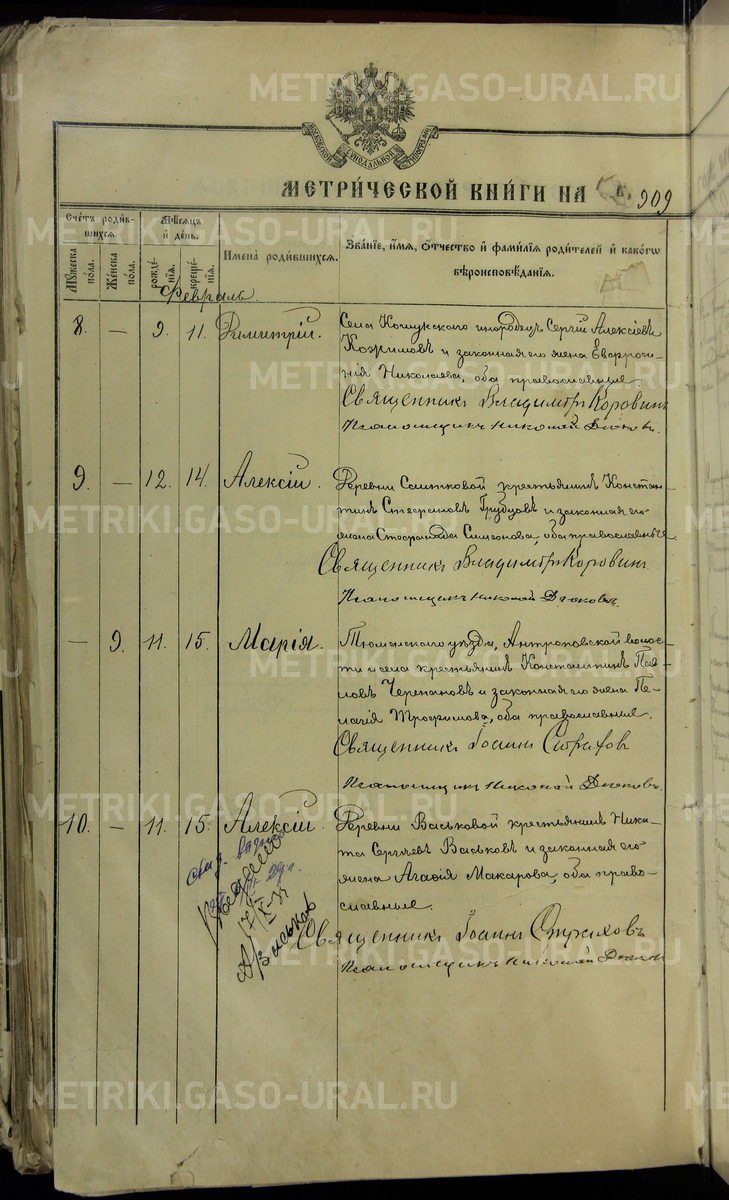 МОСКОВСКОЙ СѴНОДАЛЬНОЙ ТИПОГРАФІИ
МЕТРИ́ЧЕСКОЙ КНИ́ГИ НА 909
Счетъ роди́вшихся.
Мѣсяцъ и день.
Мꙋжеска пола.
Женска пола.
рожденія.
крещенія.
Имена родившихся.
Званіе, имя, отчество и фамилія родителей и какогѡ вѣроисповѣданія.
Февраль
8. — 9. 11. Димитрій.
Села Кошукскаго инородец Сергій Алексіевъ
и законная его жена Евфроси-
нія Николаева, оба православные.
Священникъ Владимір Коровинъ
Псаломщикъ Николай Дюковъ.
9. — 12. 14. Алексій.
Деревни крестьянинъ Констан-
тинъ Стефановъ Грубцовъ и законная его
жена Стефанида Симеонова, оба православные
Священникъ Владимір Коровинъ
Псаломщикъ Николай Дюковъ.
— 9. 11. 15. Марія.
Тюменскаго уѣзда, Антроповской волос-
ти и села крестьянинъ Константинъ Пав-
ловъ Черепановъ и законная его жена Пе-
лагія Трофимова, оба православные.
Священникъ Іоаннъ Страхов
Псаломщикъ Николай Дюковъ.
10. — 11. 15. Алексій.
Деревни Васьковой крестьянинъ Ники-
та Сергіевъ Васьковъ и законная его
жена Агафія Макарова, оба право-
славные.
Священникъ Іоаннъ Страховъ
Псаломщикъ Николай Дюков
Васьков
METRIKI.GASO-URAL.RU